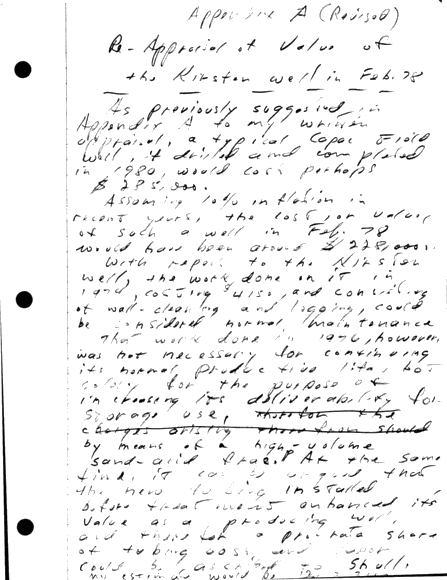 Appendix A (Revised)
Re-Appraisal of Value of
the Kirsten well in Feb. 78
As previously suggested in
Appendix A to my written
appraisal, a typical Capac Field
well, if drilled and completed
in 1980, would cost perhaps
$ 285,000.
Assuming 10% inflation in
recent years, the cost, or value,
of such a well in Feb. 78
would have been around $ 228,000.
With respect to the Kirsten
well, the work done on it in
1974, costing $4150, and consisting
of well-cleaning and logging, could
be considered normal maintenance
That work done in 1976, however,
was not necessary for continuing
its normal productive life, but
solely for the purpose of
increasing its deliverability for
storage use, therefor the
charges arising therefrom should
by means of a high-volume
sand-acid frac. At the same
time, it can be argued that
the new tubing installed
before treatment enhanced its
value as a producing well,
and therefor a pro-rata share
of tubing cost and
could be ascribed to Shell,
my estimate would be